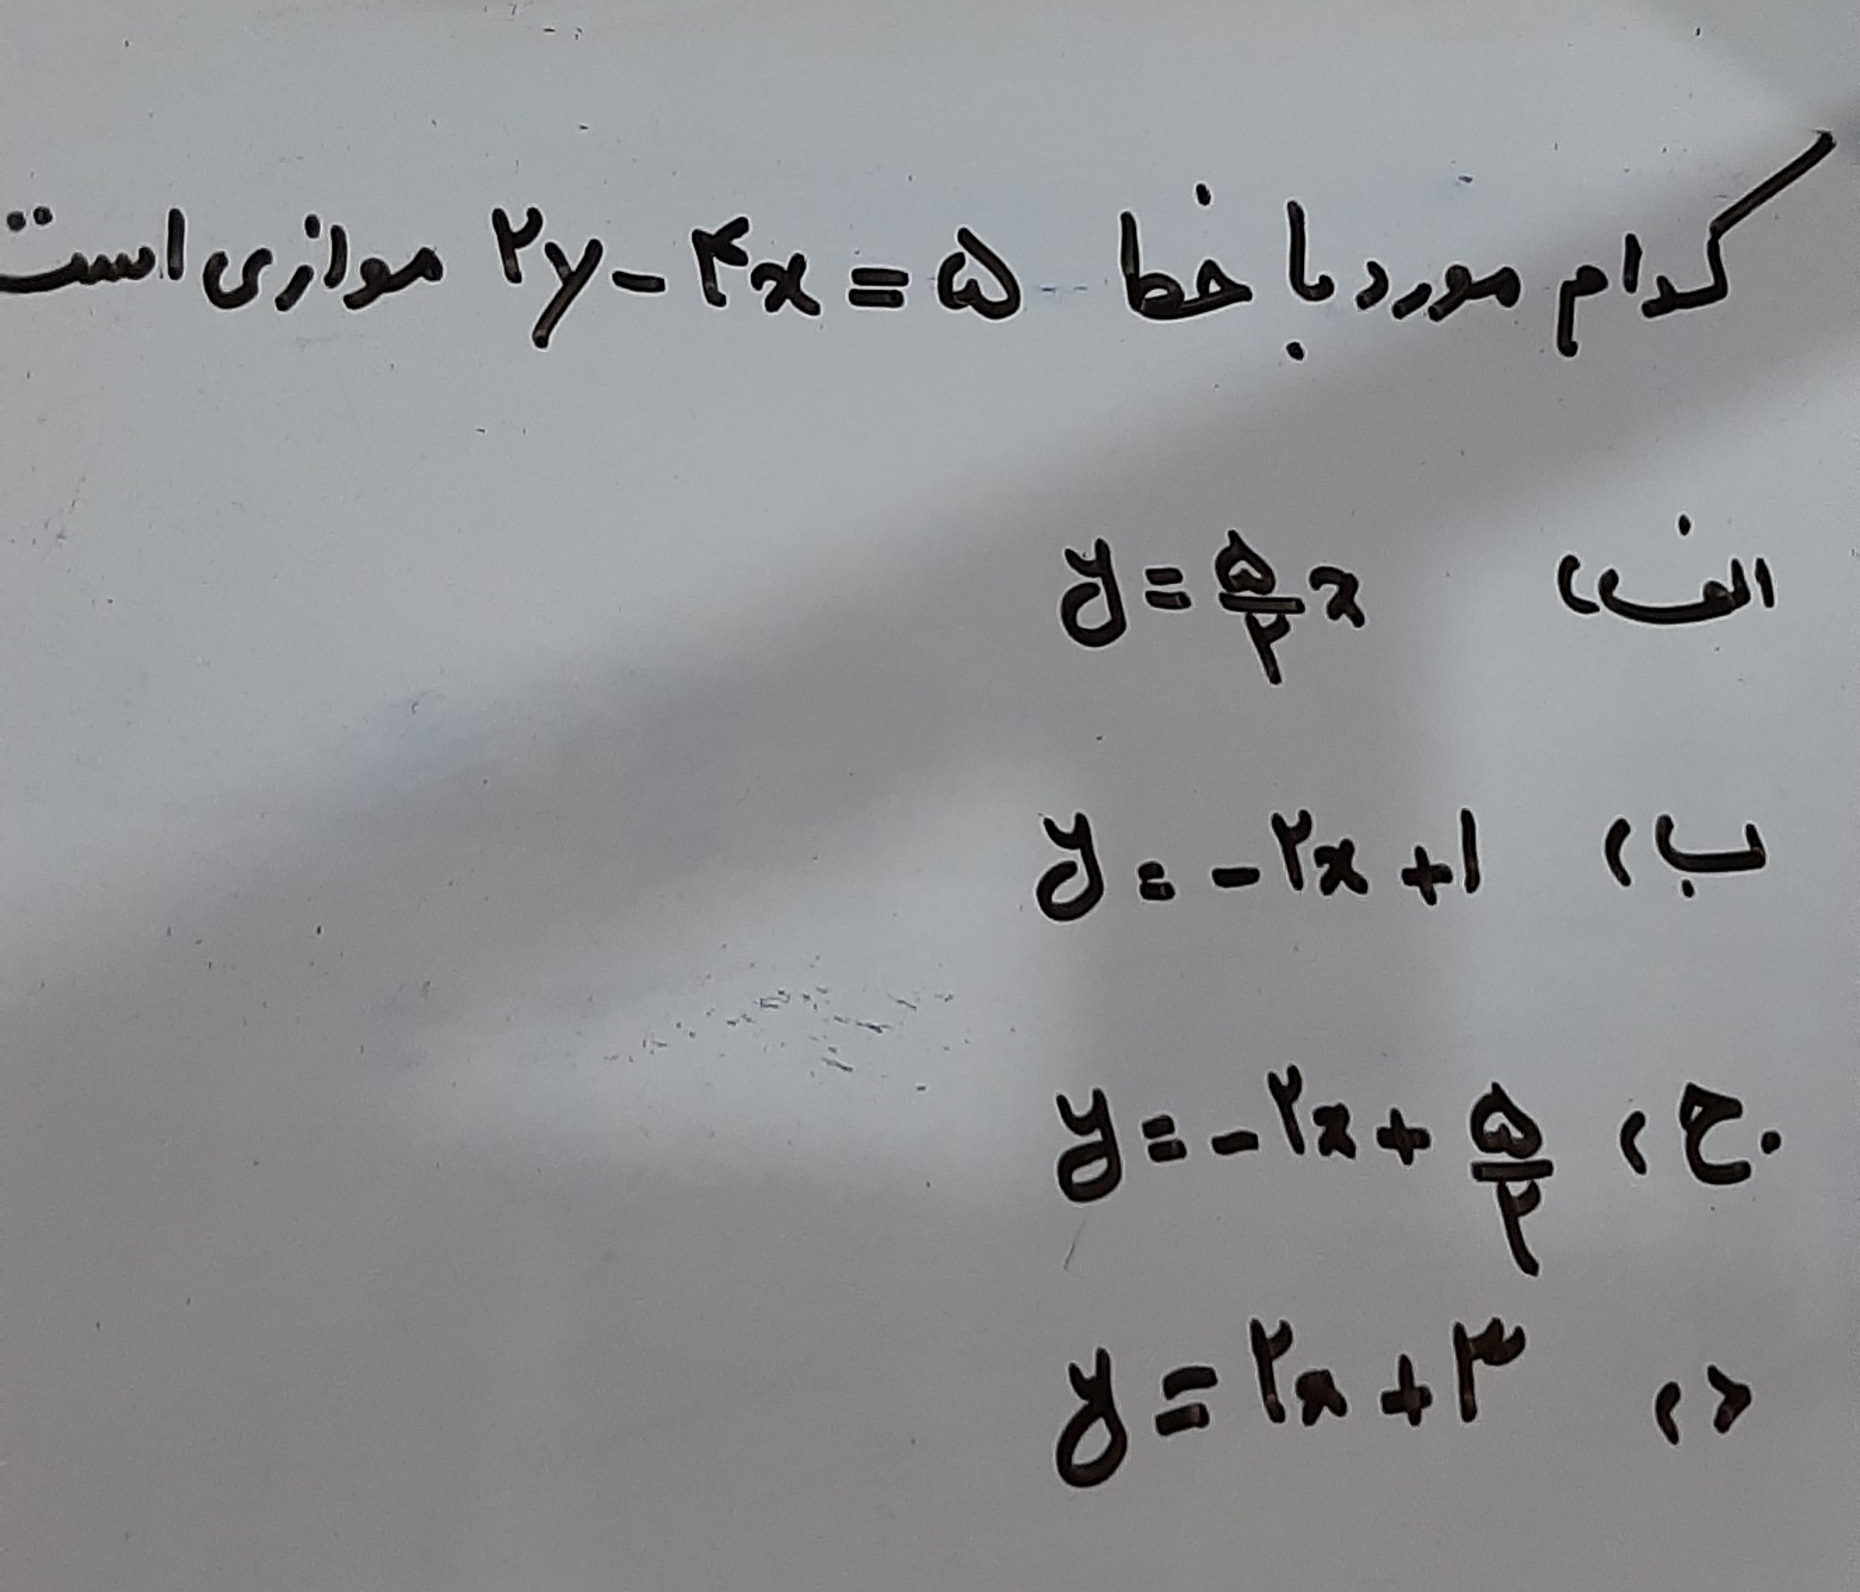 کدام مورد با خط ۲y - ۴x = ۵ موازی است
الف) y = ۵/۲ x
ب) y = -۲x + ۱
ج) y = -۲x + ۵/۲
د) y = ۲x + ۳